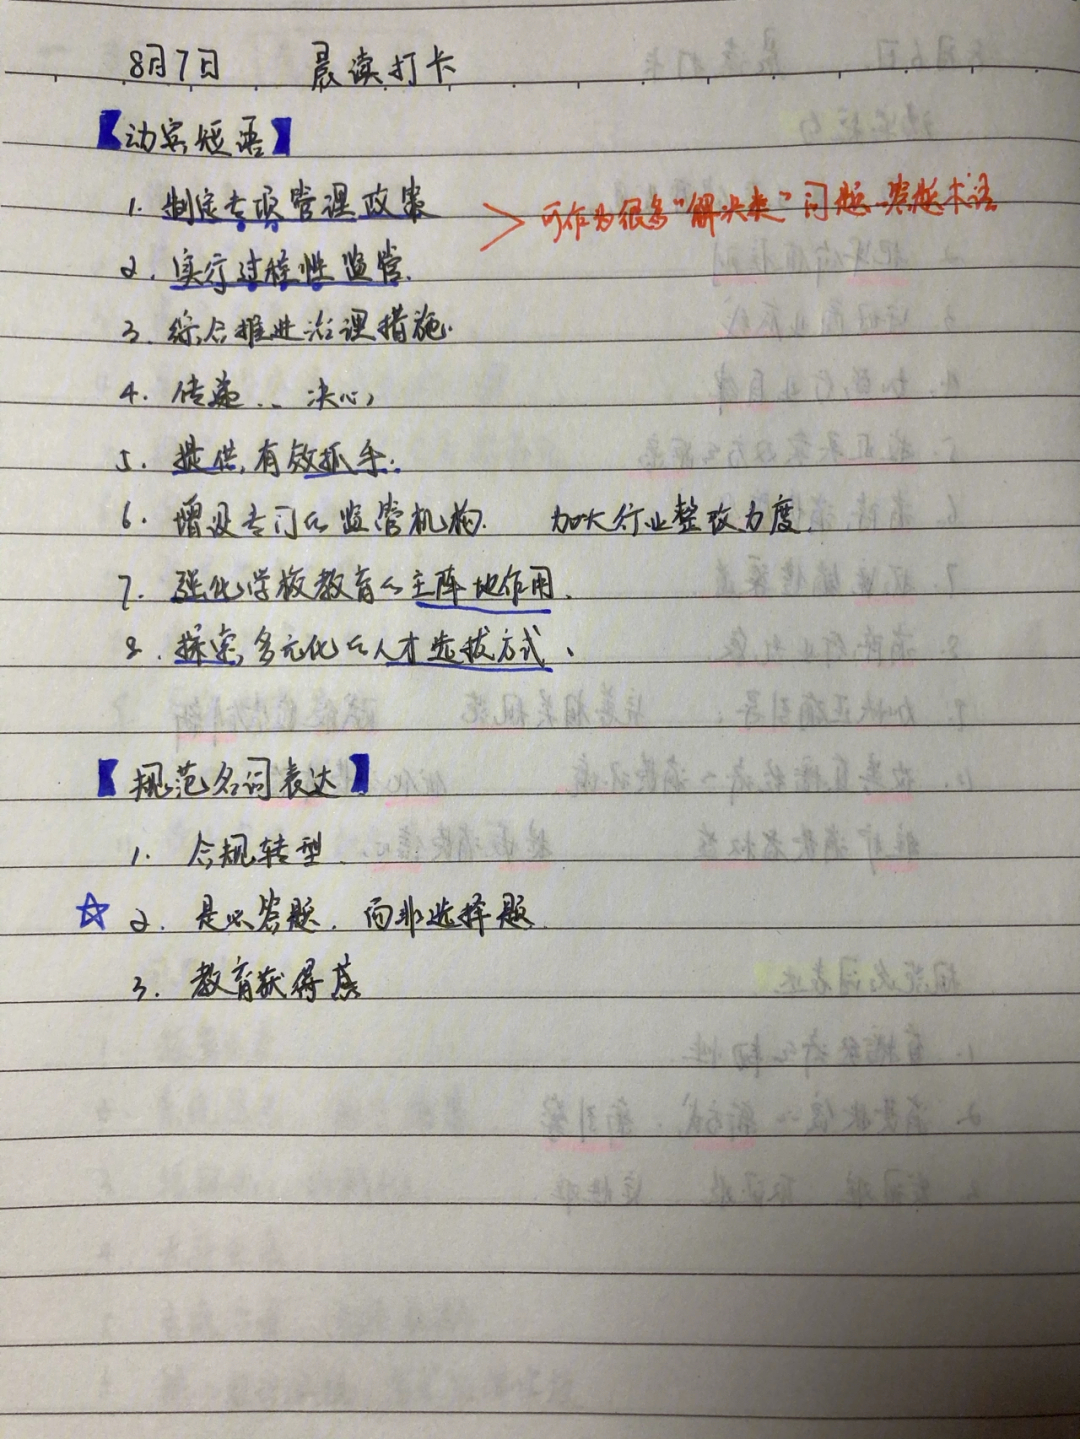 8月7日 晨读打卡
【动宾短语】
1. 制定专项管理政策
2. 实行过程性监管.
可作为很多"解决类"问题答题术语
3. 综合推进治理措施.
4. 传递... 决心,
5. 提供有效抓手.
6. 增设专门的监管机构. 加大行业整改力度.
7. 强化学校教育的主阵地作用.
8. 探索多元化的人才选拔方式、
【规范名词表达】
1. 合规转型.
☆ 2. 是必答题, 而非选择题.
3. 教育获得感